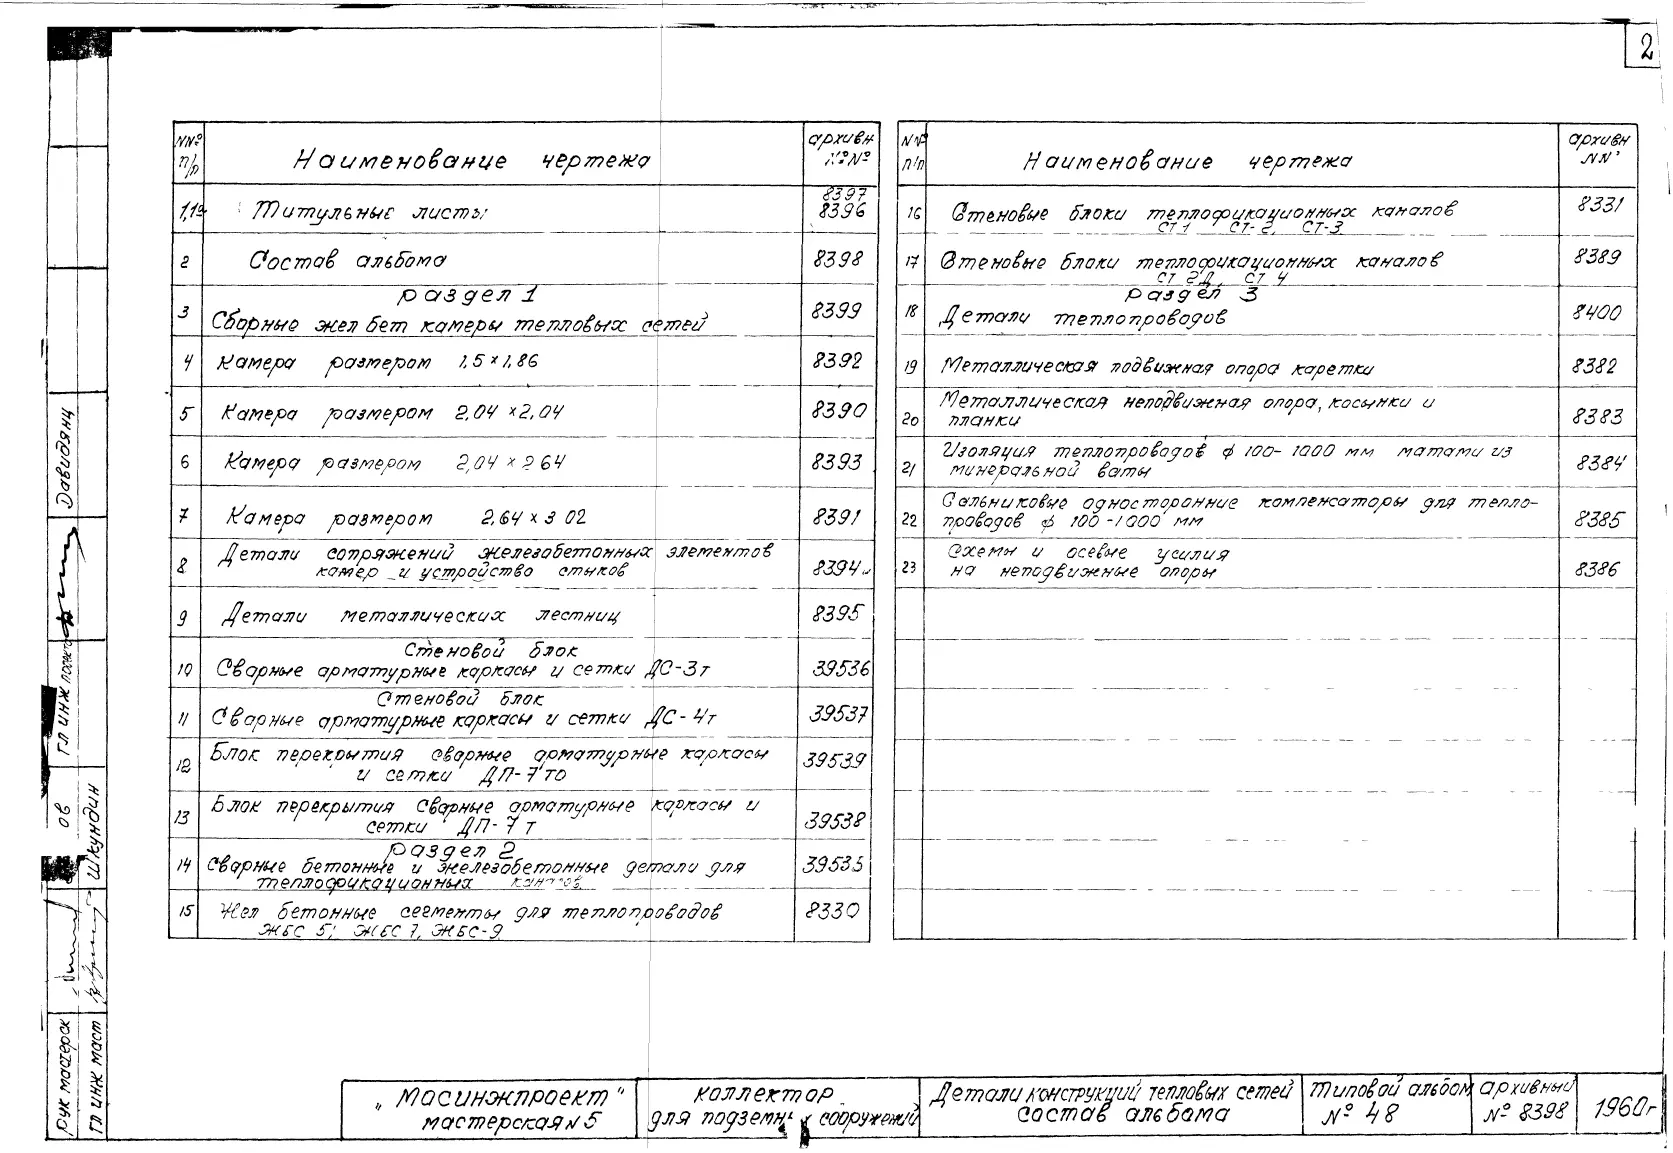 2
NN№ п/р Наименование чертежа архивн №№
1,1а Титульные листы: 8397 8396
2 Состав альбома 8398
раздел 1
3 Сборные жел бет камеры тепловых сетей 8399
4 Камера размером 1,5 x 1,86 8392
5 Камера размером 2,04 x 2,04 8390
6 Камера размером 2,04 x 2 64 8393
7 Камера размером 2,64 x 3 02 8391
8 Детали сопряжений железобетонных элементов 8394
камер и устройство стыков
9 Детали металлических лестниц 8395
Стеновой блок
10 Сварные арматурные каркасы и сетки ДС-3т 39536
Стеновой блок
11 Сварные арматурные каркасы и сетки ДС-4т 39537
12 Блок перекрытия сварные арматурные каркасы 39539
и сетки ДП-7то
13 Блок перекрытия Сварные арматурные каркасы и 39538
сетки ДП-7т
раздел 2
14 Сварные бетонные и железобетонные детали для 39535
теплофикационных каналов
15 Жел бетонные сегменты для теплопроводов 8330
ЖБС 5; ЖБС 7, ЖБС-9
N№ п/п Наименование чертежа архивн NN°
16 Стеновые блоки теплофикационных каналов 8331
СТ1 СТ-2, СТ-3
17 Стеновые блоки теплофикационных каналов 8389
СТ 2Д, СТ 4
раздел 3
18 Детали теплопроводов 8400
19 Металлическая подвижная опора каретки 8382
20 Металлическая неподвижная опора, косынки и 8383
планки
21 Изоляция теплопроводов ф 100-1000 мм матами из 8384
минеральной ваты
22 Сальниковые односторонние компенсаторы для тепло-
проводов ф 100-1000 мм 8385
23 Схемы и осевые усилия
на неподвижные опоры 8386
Давидянц
Гл инж
ов
Шкундин
рук мастерск
гл инж маст
„Мосинжпроект"
мастерская N 5
коллектор
для подземн х сооружений
Детали конструкций тепловых сетей
состав альбома
Типовой альбом
№ 48
архивный
№ 8398
1960г